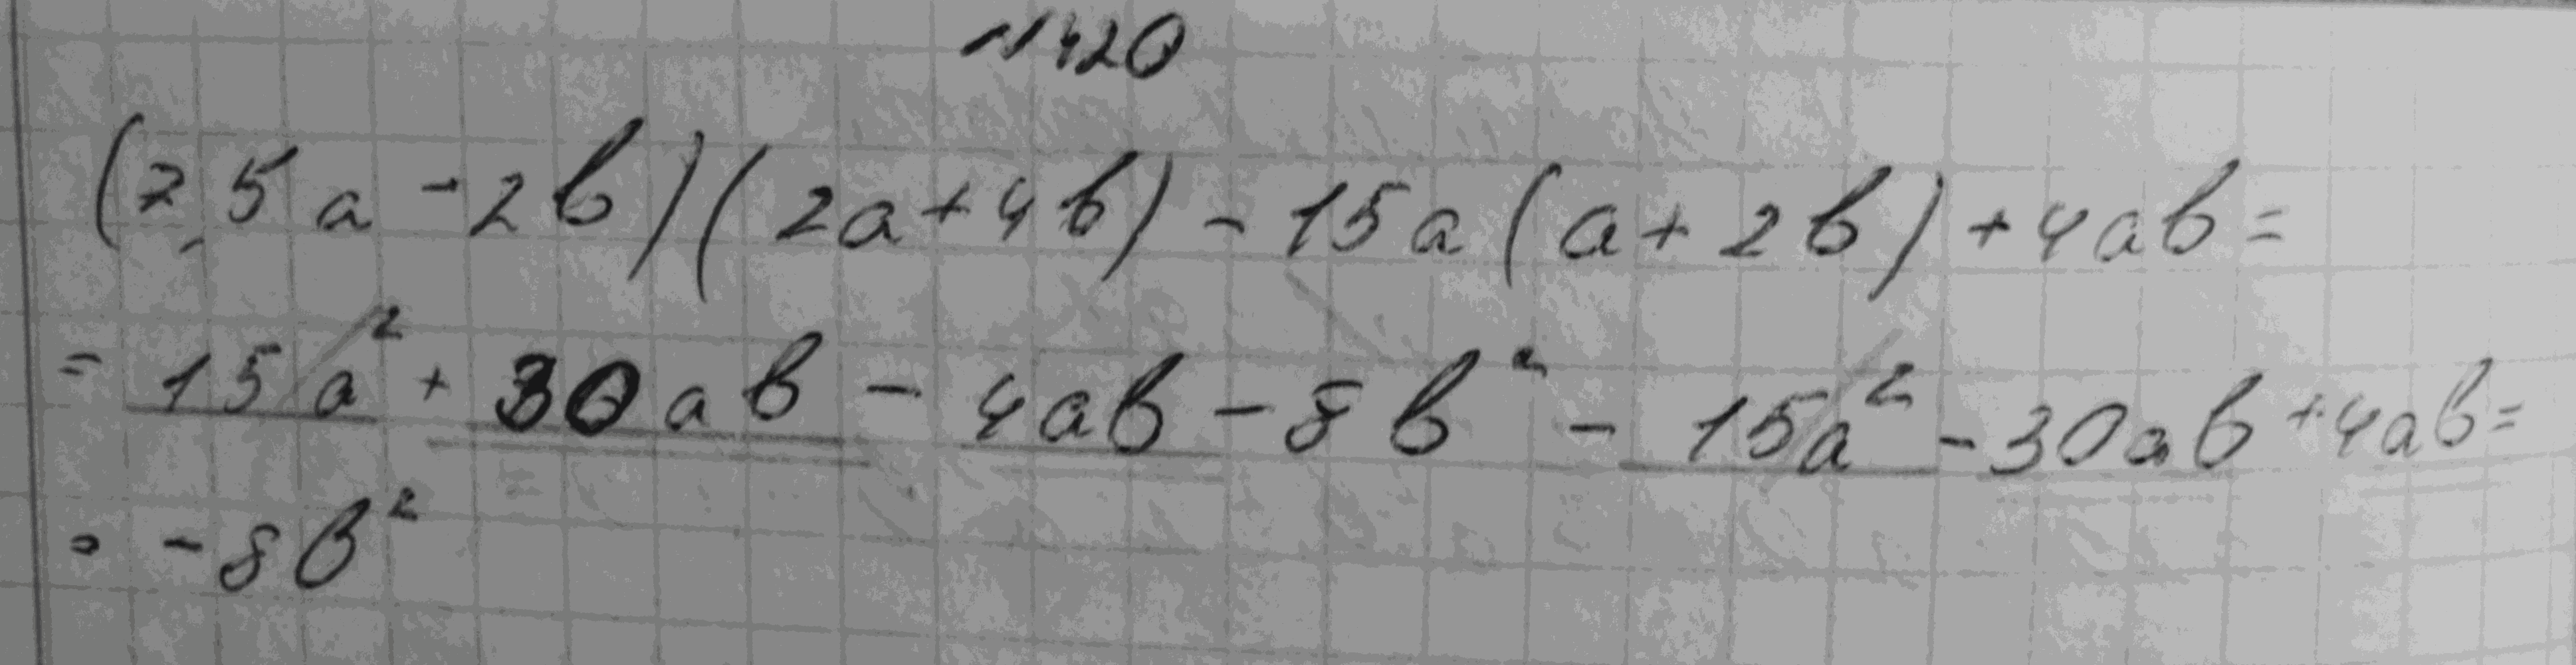 №420
(7,5a - 2b)(2a + 4b) - 15a(a + 2b) + 4ab =
= 15a² + 30ab - 4ab - 8b² - 15a² - 30ab + 4ab =
= -8b²